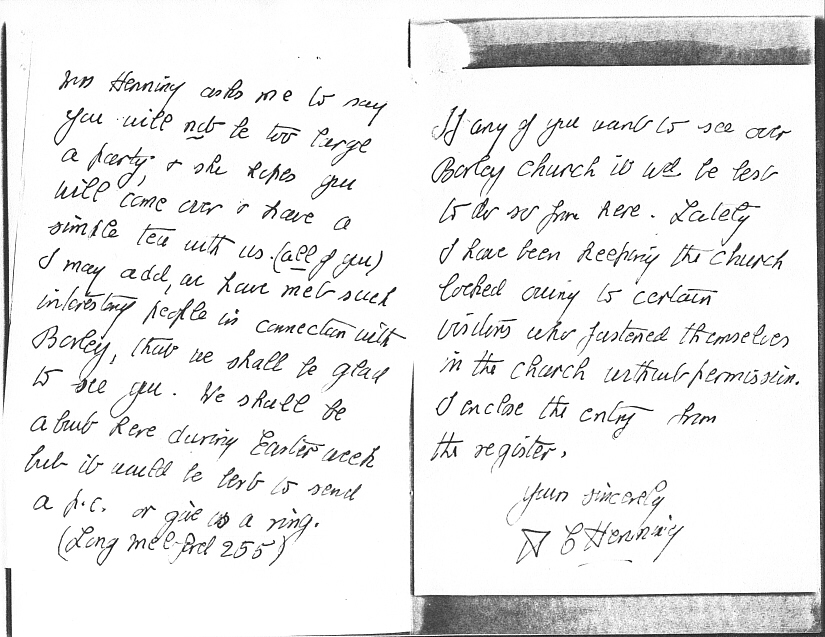 Mrs Henning asks me to say
you will not be too large
a party, & she hopes you
will come over & have a
simple tea with us. (all of you)
I may add, we have met such
interesting people in connection with
Borley, that we shall be glad
to see you. We shall be
about here during Easter week
but it would be best to send
a p.c. or give us a ring.
(Long Melford 255)
If any of you want to see over
Borley Church it wd be best
to do so from here. Lately
I have been keeping the church
locked owing to certain
visitors who fastened themselves
in the church without permission.
I enclose the entry from
the register.
Yours sincerely
A C Henning